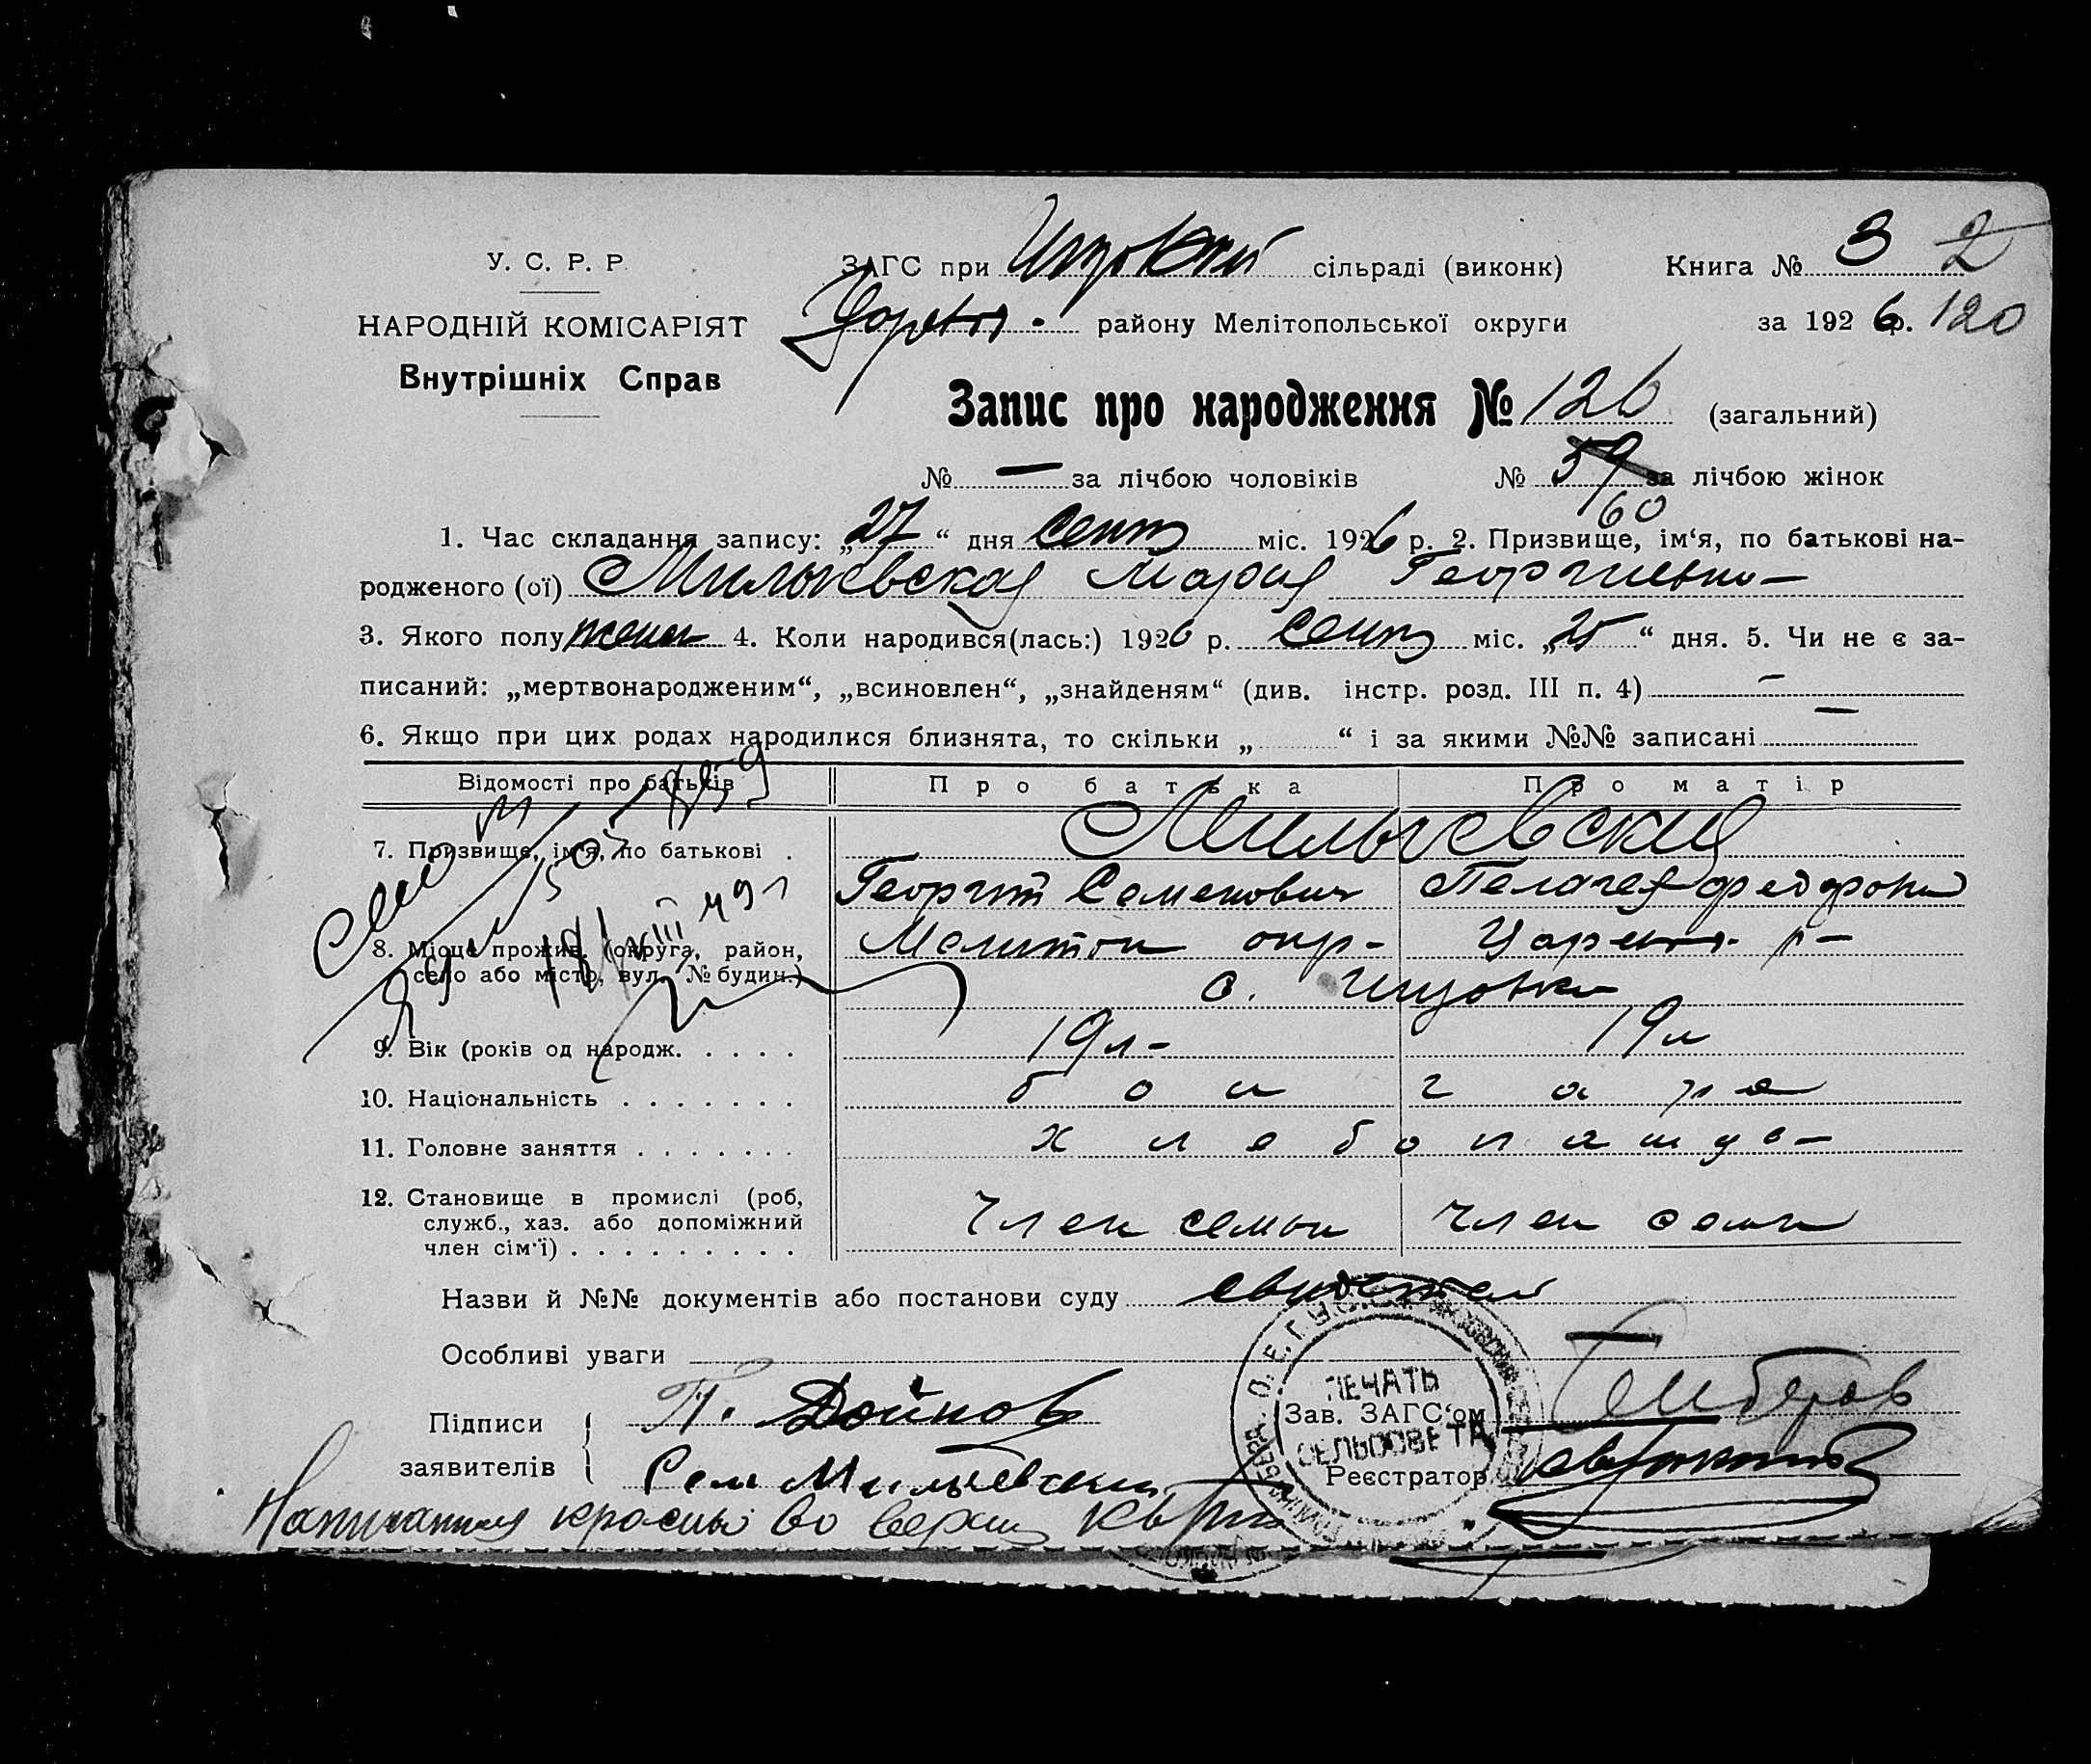 У. С. Р. Р.
НАРОДНІЙ КОМІСАРІЯТ
Внутрішніх Справ
ЗАГС при сільраді (виконк)
району Мелітопольської округи
Книга № 3 2
за 1926 р. 120
Запис про народження № 126 (загальний)
№ — за лічбою чоловіків № 59 за лічбою жінок
60
1. Час складання запису: „27“ дня сент міс. 1926 р. 2. Призвище, ім‘я, по батькові на-
родженого (ої) Мильчевская Мария Георгиевна
3. Якого полу жен 4. Коли народився(лась:) 1926 р. сент міс. „25“ дня. 5. Чи не є за-
писаний: „мертвонародженим“, „всиновлен“, „знайденям“ (див. інстр. розд. III п. 4) —
6. Якщо при цих родах народилися близнята, то скільки „ “ і за якими №№ записані —
Відомості про батьків Про батька Про матір
7. Призвище, ім‘я, по батькові . Мильчевския
Георгий Семенович Пелагея Федоровна
8. Місце прожив. (округа, район,
село або місто, вул. № будин.)
Мелитоп окр- Царев р-
с.
9. Вік (років од народж. . . . . 19 л- 19 л
10. Національність . . . . . . . болгаре
11. Головне заняття . . . . . . . хлебопашус-
12. Становище в промислі (роб,
служб., хаз. або допоміжний
член сім‘ї) . . . . . . . . . член семьи член семи
Назви й №№ документів або постанови суду
Особливі уваги
Підписи
заявителів
П. Дойнов
Сем Мильчевский
ПЕЧАТЬ
Зав. ЗАГС‘ом
СЕЛЬСОВЕТА
Реєстратор
во верху